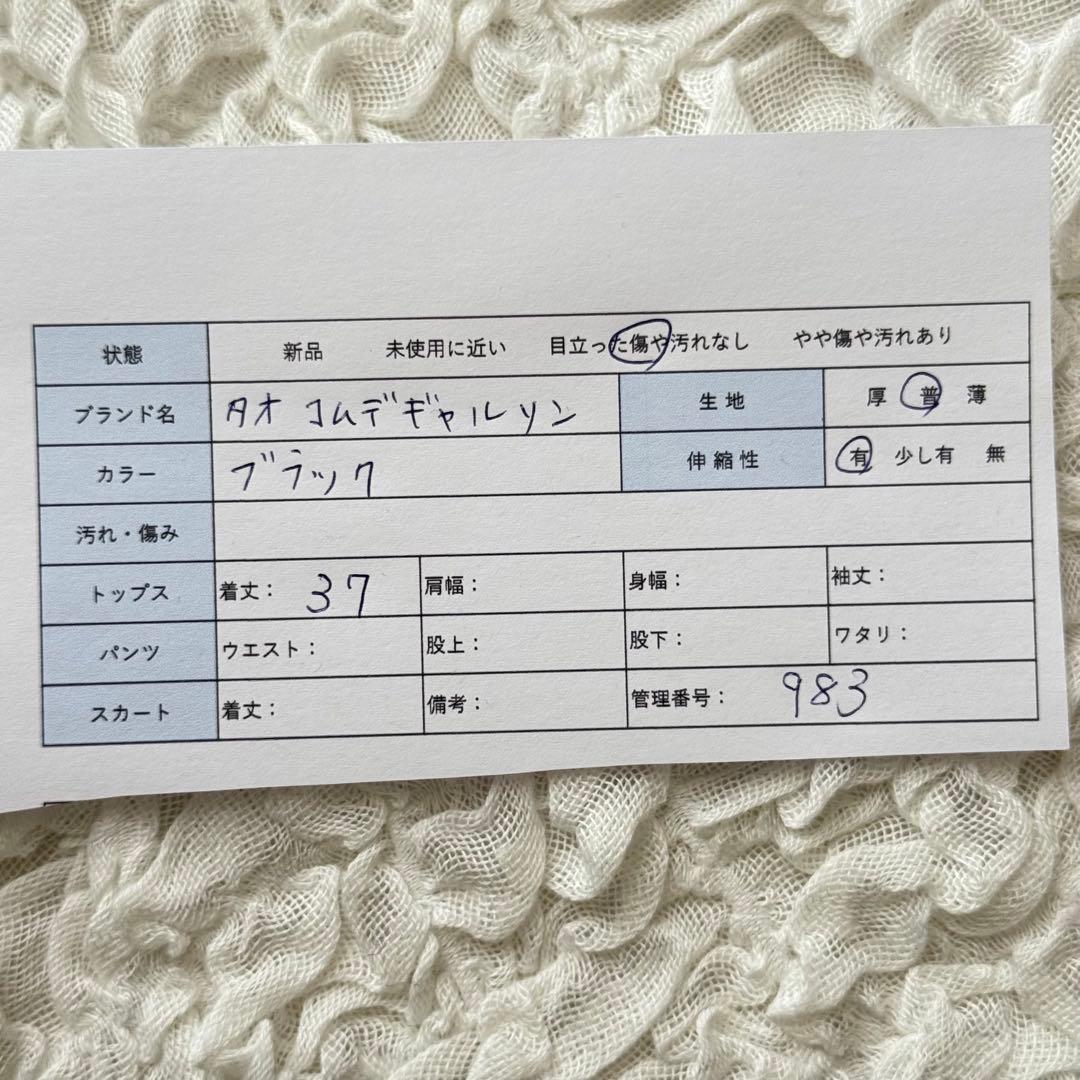 状態 新品 未使用に近い 目立った傷や汚れなし やや傷や汚れあり
ブランド名 タオ コムデギャルソン 生地 厚 普 薄
カラー ブラック 伸縮性 有 少し有 無
汚れ・傷み
トップス 着丈： 37 肩幅： 身幅： 袖丈：
パンツ ウエスト： 股上： 股下： ワタリ：
スカート 着丈： 備考： 管理番号： 983